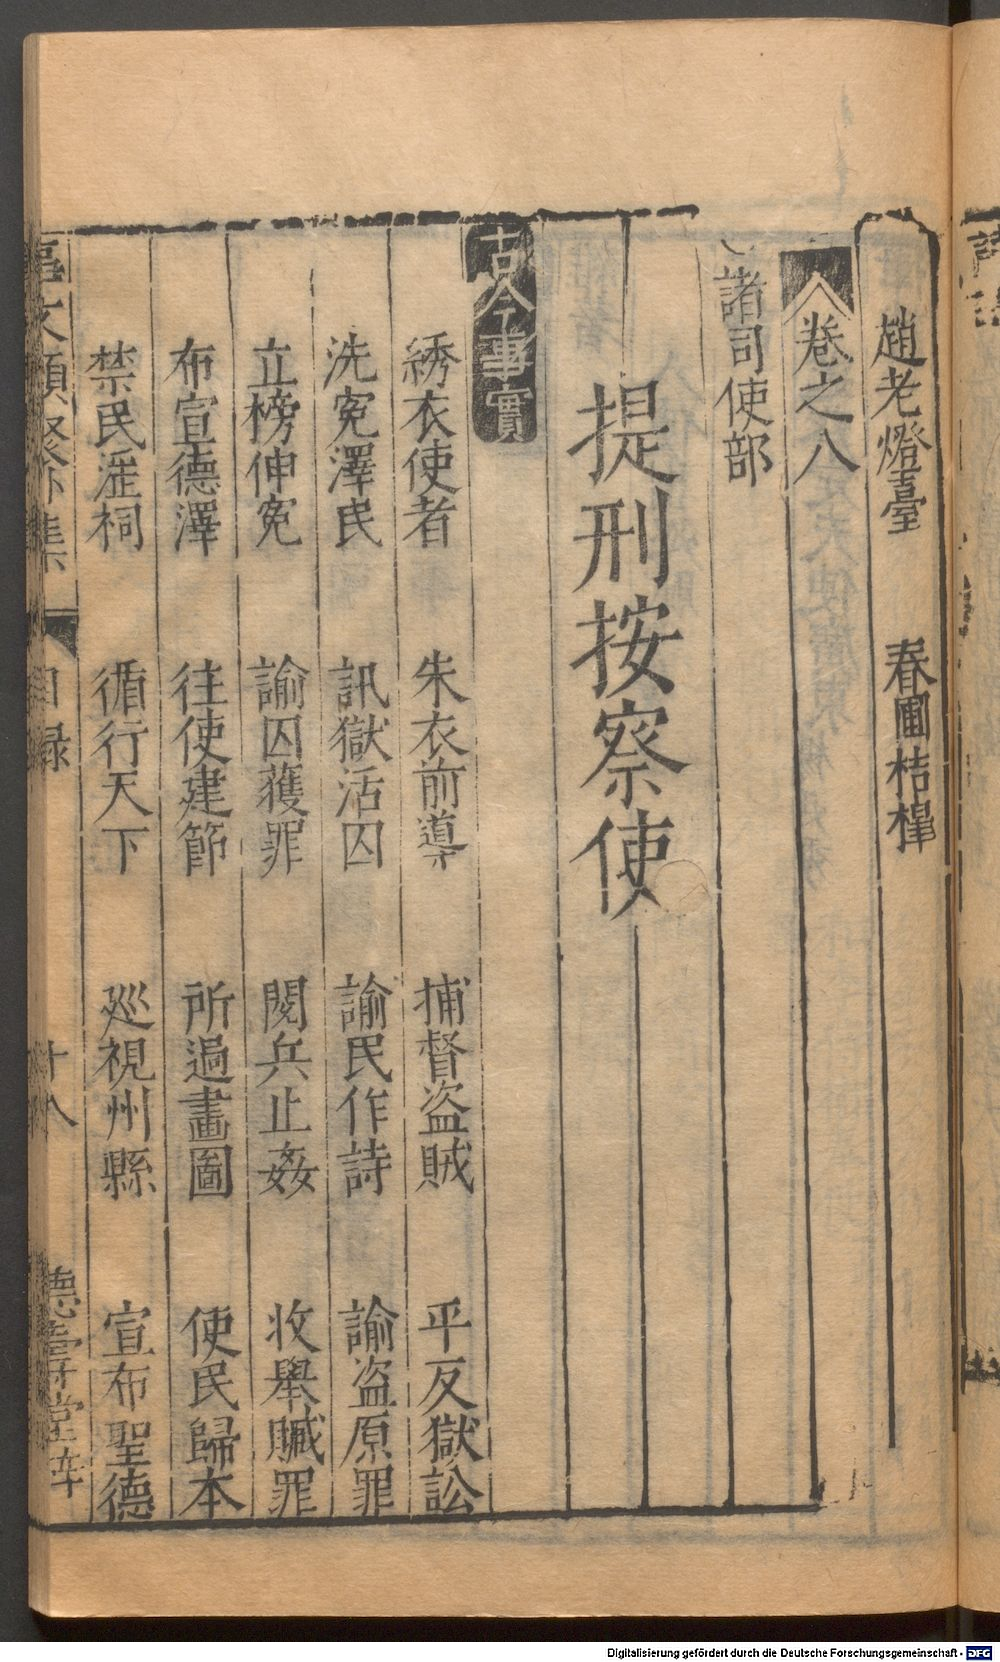 趙老燈臺　春圃桔槹
卷之八
諸司使部
提刑按察使
古今事實
綉衣使者　朱衣前導　捕督盜賊　平反獄訟
洗寃澤民　訊獄活囚　諭民作詩　諭盜原罪
立榜伸寃　諭囚獲罪　閱兵止姦　收舉贓罪
布宣德澤　往使建節　所過畫圖　使民歸本
禁民淫祠　循行天下　廵視州縣　宣布聖德
文類聚外集　目録　十八　德壽堂梓
Digitalisierung gefördert durch die Deutsche Forschungsgemeinschaft - DFG